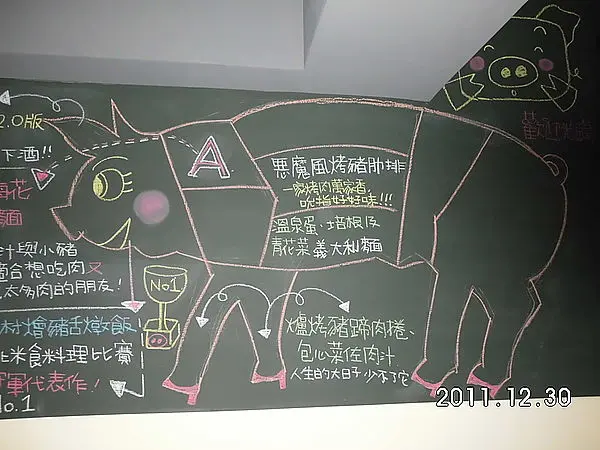 2.0版
下酒!!
梅花
麵
A
惡魔風烤豬肋排
一家烤肉萬家香,
吮指好好味!!!
溫泉蛋、培根及
青花菜義大利麵
汁與小豬
適合想吃肉又
太多肉的朋友!
No1
材燴豬舌燉飯
米食料理比賽
冠軍代表作!
No.1
爐烤豬蹄肉捲、
包心菜佐肉汁
人生的大日子少不了它
歡迎光臨
2011.12.30